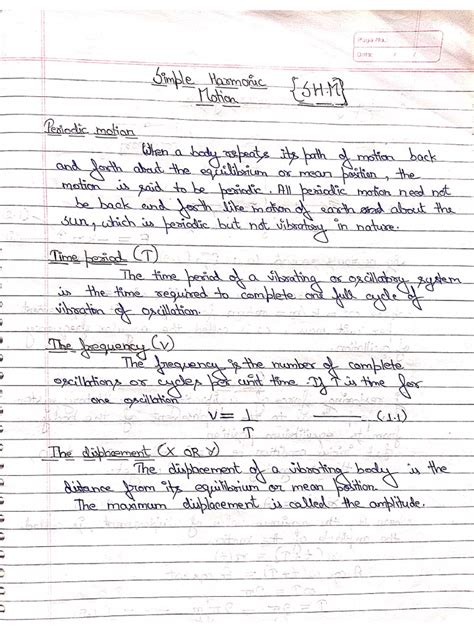 Page No.
Date
Simple Harmonic
Motion {S.H.M}
Periodic motion
When a body repeats its path of motion back
and forth about the equilibrium or mean position, the
motion is said to be periodic. All periodic motion need not
be back and forth like motion of earth about the
sun, which is periodic but not vibratory in nature.
Time period (T)
The time period of a vibrating or oscillatory system
is the time required to complete one full cycle of
vibration of oscillation.
The frequency (V)
The frequency is the number of complete
oscillations or cycles per unit time. If T is time for
one oscillation
V = 1 (1.1)
T
The displacement (X OR Y)
The displacement of a vibrating body is the
distance from its equilibrium or mean position.
The maximum displacement is called the amplitude.